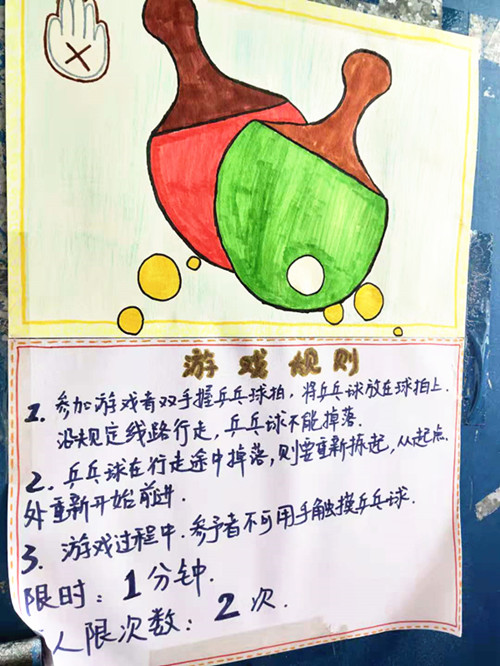 游戏规则
1. 参加游戏者双手握乒乓球拍，将乒乓球放在球拍上.
沿规定线路行走，乒乓球不能掉落.
2. 乒乓球在行走途中掉落，则要重新拣起，从起点
外重新开始前进.
3. 游戏过程中.参予者不可用手触摸乒乓球.
限时：1分钟.
人限次数：2次.